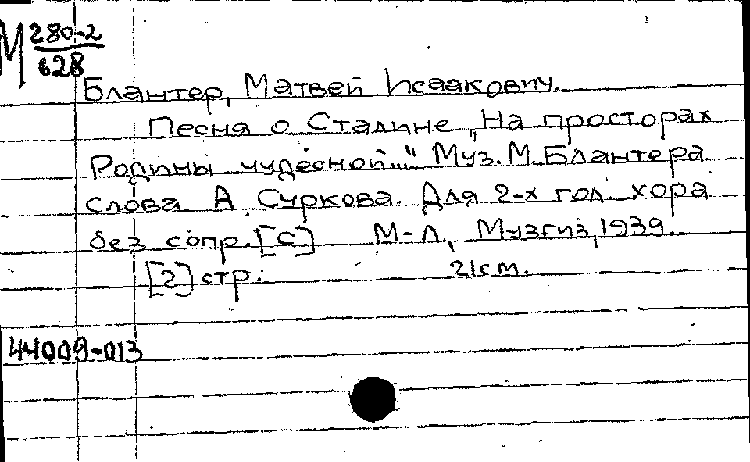 М 280-2
628
Блантер, Матвей Исаакович.
Песня о Сталине „На просторах
Родины чудесной..." Муз. М. Блантера
слова А. Суркова. Для 2-х гол. хора
без сопр. [С] М-Л, Музгиз, 1939.
[2] стр. 21 см.
44009-013